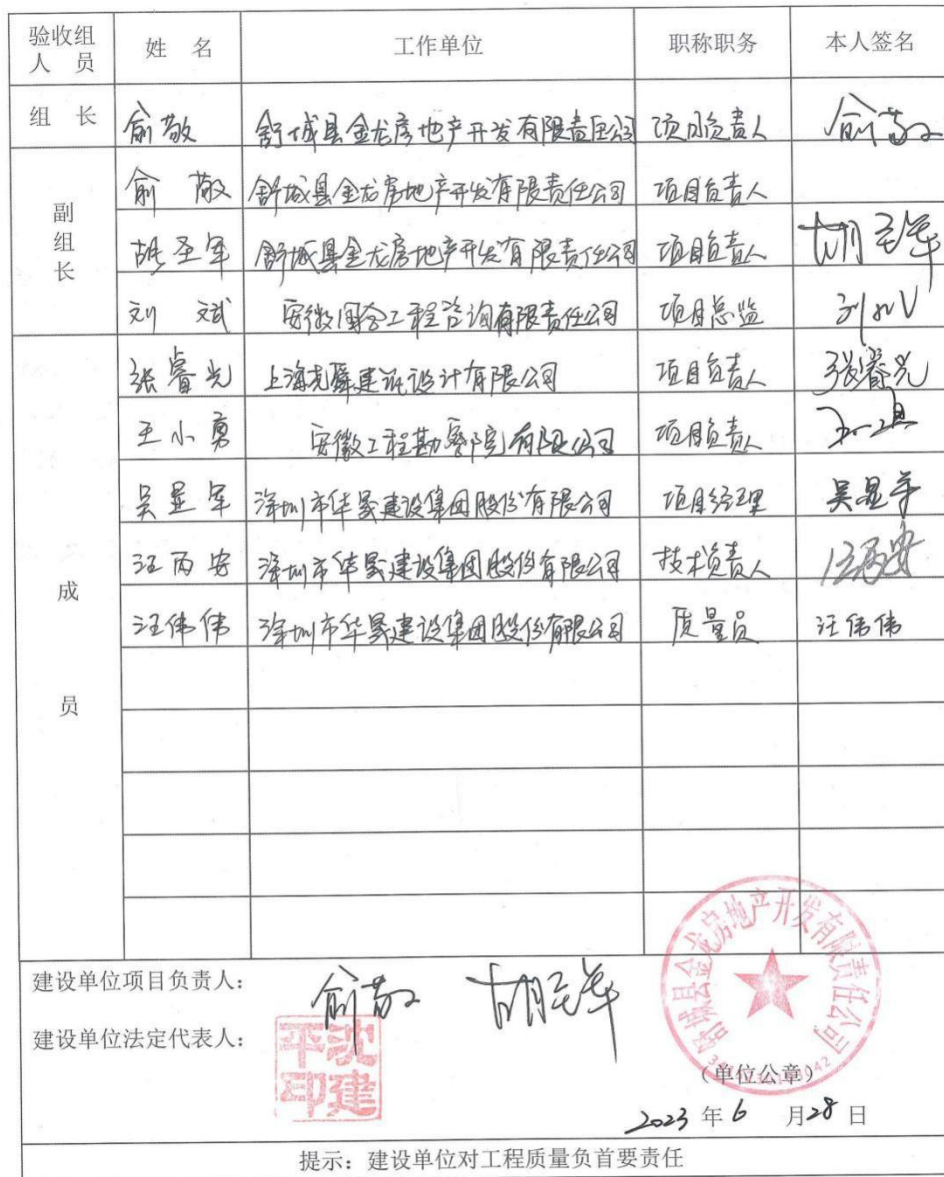 验收组人员 姓 名 工作单位 职称职务 本人签名
组 长 俞敬 舒城县金龙房地产开发有限责任公司 项目负责人 俞敬
副组长 俞 敬 舒城县金龙房地产开发有限责任公司 项目负责人
胡圣军 舒城县金龙房地产开发有限责任公司 项目负责人 胡圣军
刘 斌 安徽国合工程咨询有限责任公司 项目总监 刘斌
成员 张睿光 上海尧舜建筑设计有限公司 项目负责人 张睿光
王小勇 安徽工程勘察院有限公司 项目负责人
吴显军 深圳市华晟建设集团股份有限公司 项目经理 吴显军
汪丙安 深圳市华晟建设集团股份有限公司 技术负责人 汪丙安
汪伟伟 深圳市华晟建设集团股份有限公司 质量员 汪伟伟
建设单位项目负责人： 俞敬 胡圣军
建设单位法定代表人： 沈建平印
舒城县金龙房地产开发有限责任公司
（单位公章）
2023 年 6 月 28 日
提示：建设单位对工程质量负首要责任